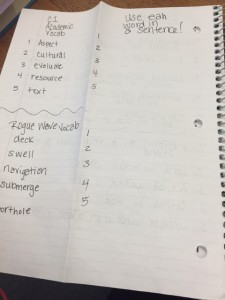 CI
Academic
Vocab
1 Aspect
2 cultural
3 evaluate
4 resource
5 text
Use eah
word in
a sentence!
1
2
3
4
5
Rogue Wave Vocab
deck
swell
navigation
submerge
porthole
1
2
3
4
5